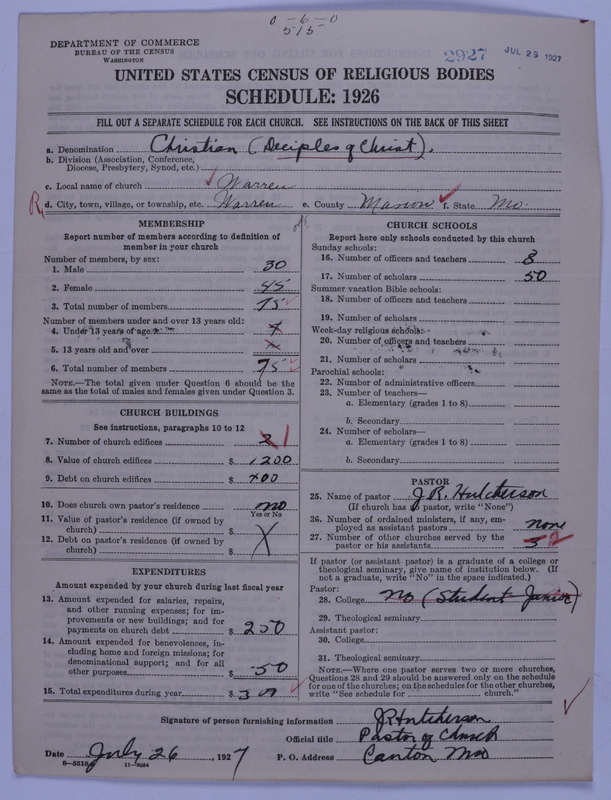 0-6-0
515
DEPARTMENT OF COMMERCE
BUREAU OF THE CENSUS
WASHINGTON
2927
JUL 29 1927
UNITED STATES CENSUS OF RELIGIOUS BODIES
SCHEDULE: 1926
FILL OUT A SEPARATE SCHEDULE FOR EACH CHURCH. SEE INSTRUCTIONS ON THE BACK OF THIS SHEET
a. Denomination Christian (Deciples of Christ).
b. Division (Association, Conference, Diocese, Presbytery, Synod, etc.)
c. Local name of church Warren
R d. City, town, village, or township, etc. Warren e. County Marion f. State Mo.
MEMBERSHIP
Report number of members according to definition of member in your church
Number of members, by sex:
1. Male 30
2. Female 45
3. Total number of members 75
Number of members under and over 13 years old:
4. Under 13 years of age
5. 13 years old and over
6. Total number of members 75
NOTE.—The total given under Question 6 should be the same as the total of males and females given under Question 3.
CHURCH BUILDINGS
See instructions, paragraphs 10 to 12
7. Number of church edifices 1
8. Value of church edifices $ 1200
9. Debt on church edifices $ 400
10. Does church own pastor's residence no
Yes or No
11. Value of pastor's residence (if owned by church) $ X
12. Debt on pastor's residence (if owned by church) $
EXPENDITURES
Amount expended by your church during last fiscal year
13. Amount expended for salaries, repairs, and other running expenses; for improvements or new buildings; and for payments on church debt $ 250
14. Amount expended for benevolences, including home and foreign missions; for denominational support; and for all other purposes $ 50
15. Total expenditures during year $ 300
CHURCH SCHOOLS
Report here only schools conducted by this church
Sunday schools:
16. Number of officers and teachers 8
17. Number of scholars 50
Summer vacation Bible schools:
18. Number of officers and teachers
19. Number of scholars
Week-day religious schools:
20. Number of officers and teachers
21. Number of scholars
Parochial schools:
22. Number of administrative officers
23. Number of teachers—
a. Elementary (grades 1 to 8)
b. Secondary
24. Number of scholars—
a. Elementary (grades 1 to 8)
b. Secondary
PASTOR
25. Name of pastor J.R. Hutcherson
(If church has no pastor, write "None")
26. Number of ordained ministers, if any, employed as assistant pastors none
27. Number of other churches served by the pastor or his assistants 3 2
If pastor (or assistant pastor) is a graduate of a college or theological seminary, give name of institution below. (If not a graduate, write "No" in the space indicated.)
Pastor:
28. College No (Student Junior)
29. Theological seminary
Assistant pastor:
30. College
31. Theological seminary
NOTE.—Where one pastor serves two or more churches, Questions 28 and 29 should be answered only on the schedule for one of the churches; on the schedules for the other churches, write "See schedule for church."
Signature of person furnishing information J.R Hutcherson
Official title Pastor of Church
Date July 26, 1927 P. O. Address Canton Mo
11—9034